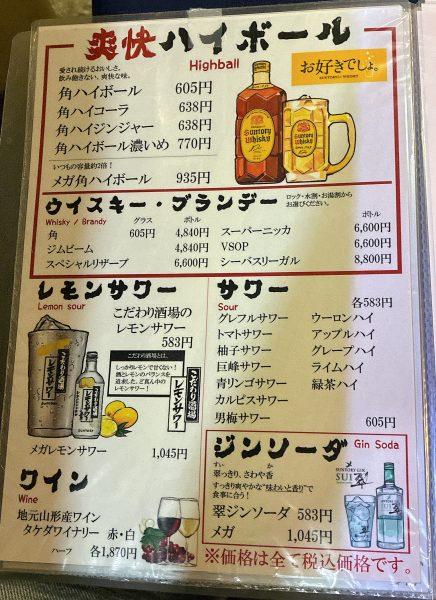 爽快ハイボール
Highball
愛され続けるおいしさ。
飲み飽きない、爽快な味。
お好きでしょ。
SUNTORY WHISKY
角ハイボール 605円
角ハイコーラ 638円
角ハイジンジャー 638円
角ハイボール濃いめ 770円
いつもの容量約2倍!
メガ角ハイボール 935円
Suntory Whisky
Suntory Whisky
ウイスキー・ブランデー
ロック・水割・お湯割から
お選びください。
Whisky / Brandy グラス ボトル ボトル
角 605円 4,840円 スーパーニッカ 6,600円
ジムビーム 4,840円 VSOP 6,600円
スペシャルリザーブ 6,600円 シーバスリーガル 8,800円
レモンサワー
Lemon sour
こだわり酒場の
レモンサワー
583円
こだわり酒場とは、
しっかりレモンで甘くない!
酒とレモンのバランスを
追求した、ど真ん中の
レモンサワー!
こだわり酒場
レモンサワー
こだわり酒場の
レモンサワー
メガレモンサワー 1,045円
サワー
Sour 各583円
グレフルサワー ウーロンハイ
トマトサワー アップルハイ
柚子サワー グレープハイ
巨峰サワー ライムハイ
青リンゴサワー 緑茶ハイ
カルピスサワー
男梅サワー 605円
ワイン
Wine
地元山形産ワイン
タケダワイナリー 赤・白
ハーフ 各1,870円
ジンソーダ Gin Soda
翠(すい)っきり、さわや香(か)
すっきり爽やかな“味わいと香り”で
食事に合う!
SUNTORY GIN
SUI
翠
翠ジンソーダ 583円
メガ 1,045円
※価格は全て税込価格です。